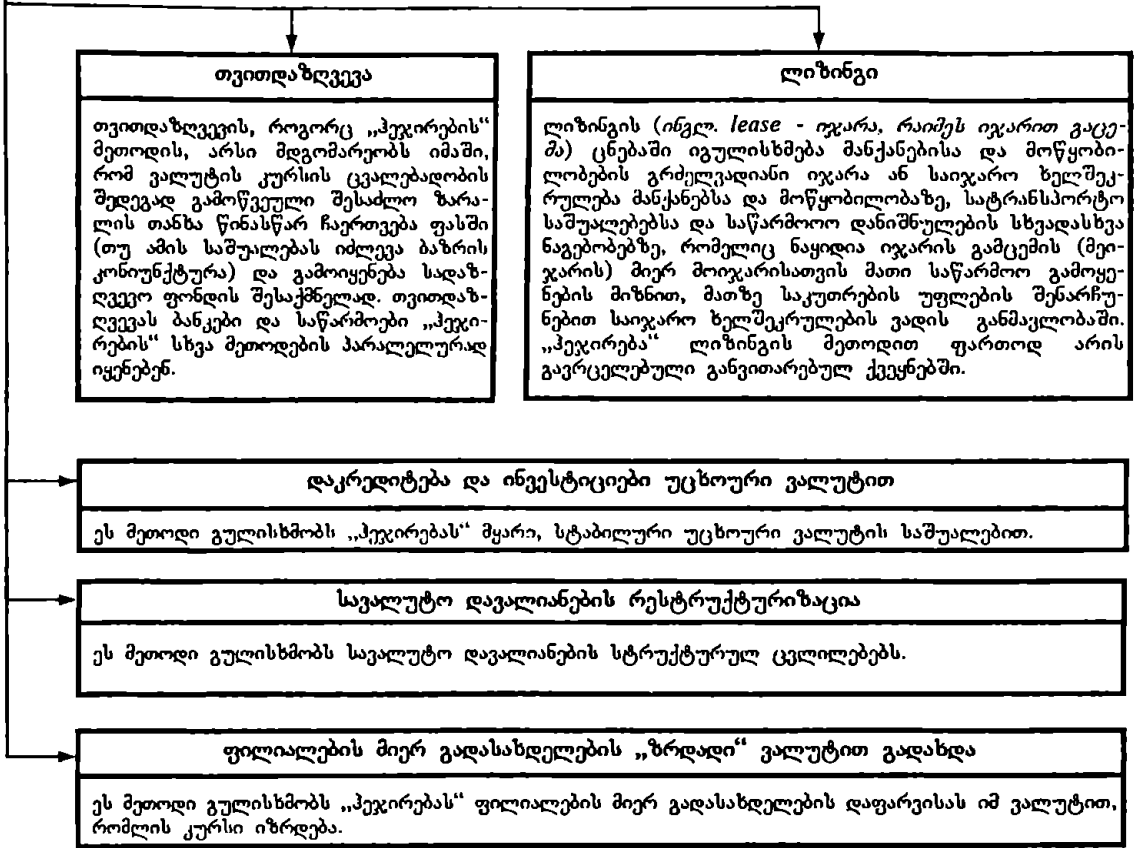 თვითდაზღვევა
თვითდაზღვევის, როგორც „ჰეჯირების“
მეთოდის, არსი მდგომარეობს იმაში,
რომ ვალუტის კურსის ცვალებადობის
შედეგად გამოწვეული შესაძლო ზარა-
ლის თანხა წინასწარ ჩაერთვება ფასში
(თუ ამის საშუალებას იძლევა ბაზრის
კონიუნქტურა) და გამოიყენება სადაზ-
ღვევო ფონდის შესაქმნელად. თვითდაზ-
ღვევას ბანკები და საწარმოები „ჰეჯი-
რების“ სხვა მეთოდების პარალელურად
იყენებენ.
ლიზინგი
ლიზინგის (ინგლ. lease - იჯარა, რაიმეს იჯარით გაცე-
მა) ცნებაში იგულისხმება მანქანებისა და მოწყობი-
ლობების გრძელვადიანი იჯარა ან საიჯარო ხელშეკ-
რულება მანქანებსა და მოწყობილობაზე, სატრანსპორტო
საშუალებებსა და საწარმოოო დანიშნულების სხვადასხვა
ნაგებობებზე, რომელიც ნაყიდია იჯარის გამცემის (მეი-
ჯარის) მიერ მოიჯარისათვის მათი საწარმოო გამოყე-
ნების მიზნით, მათზე საკუთრების უფლების შენარჩუ-
ნებით საიჯარო ხელშეკრულების ვადის განმავლობაში.
„ჰეჯირება“ ლიზინგის მეთოდით ფართოდ არის
გავრცელებული განვითარებულ ქვეყნებში.
დაკრედიტება და ინვესტიციები უცხოური ვალუტით
ეს მეთოდი გულისხმობს „ჰეჯირებას“ მყარი, სტაბილური უცხოური ვალუტის საშუალებით.
სავალუტო დავალიანების რესტრუქტურიზაცია
ეს მეთოდი გულისხმობს სავალუტო დავალიანების სტრუქტურულ ცვლილებებს.
ფილიალების მიერ გადასახდელების „ზრდადი“ ვალუტით გადახდა
ეს მეთოდი გულისხმობს „ჰეჯირებას“ ფილიალების მიერ გადასახდელების დაფარვისას იმ ვალუტით,
რომლის კურსი იზრდება.